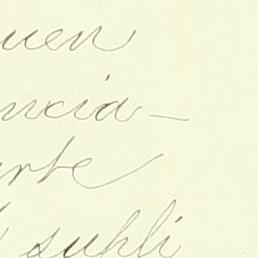 uen
ncia-
arte
suhli